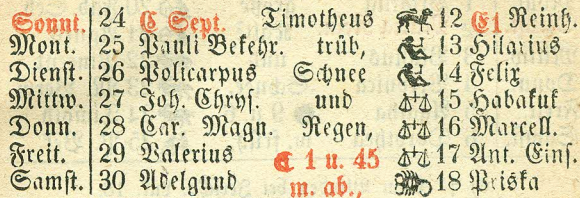 Sonnt. 24 C Sept. Timotheus 12 E1 Reinh.
Mont. 25 Pauli Bekehr. trüb, 13 Hilarius
Dienst. 26 Policarpus Schnee 14 Felix
Mittw. 27 Joh. Chrys. und 15 Habakuk
Donn. 28 Car. Magn. Regen, 16 Marcell.
Freit. 29 Valerius ☾ 1 u. 45 17 Ant. Eins.
Samst. 30 Adelgund m. ab., 18 Priska